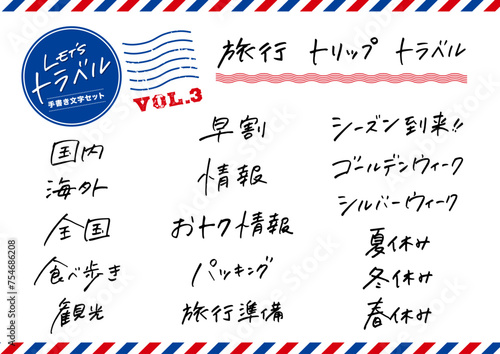 LET'S
トラベル
手書き文字セット
VOL.3
旅行 トリップ トラベル
国内
海外
全国
食べ歩き
観光
早割
情報
おトク情報
パッキング
旅行準備
シーズン到来!!
ゴールデンウィーク
シルバーウィーク
夏休み
冬休み
春休み
Adobe Stock
#754686208